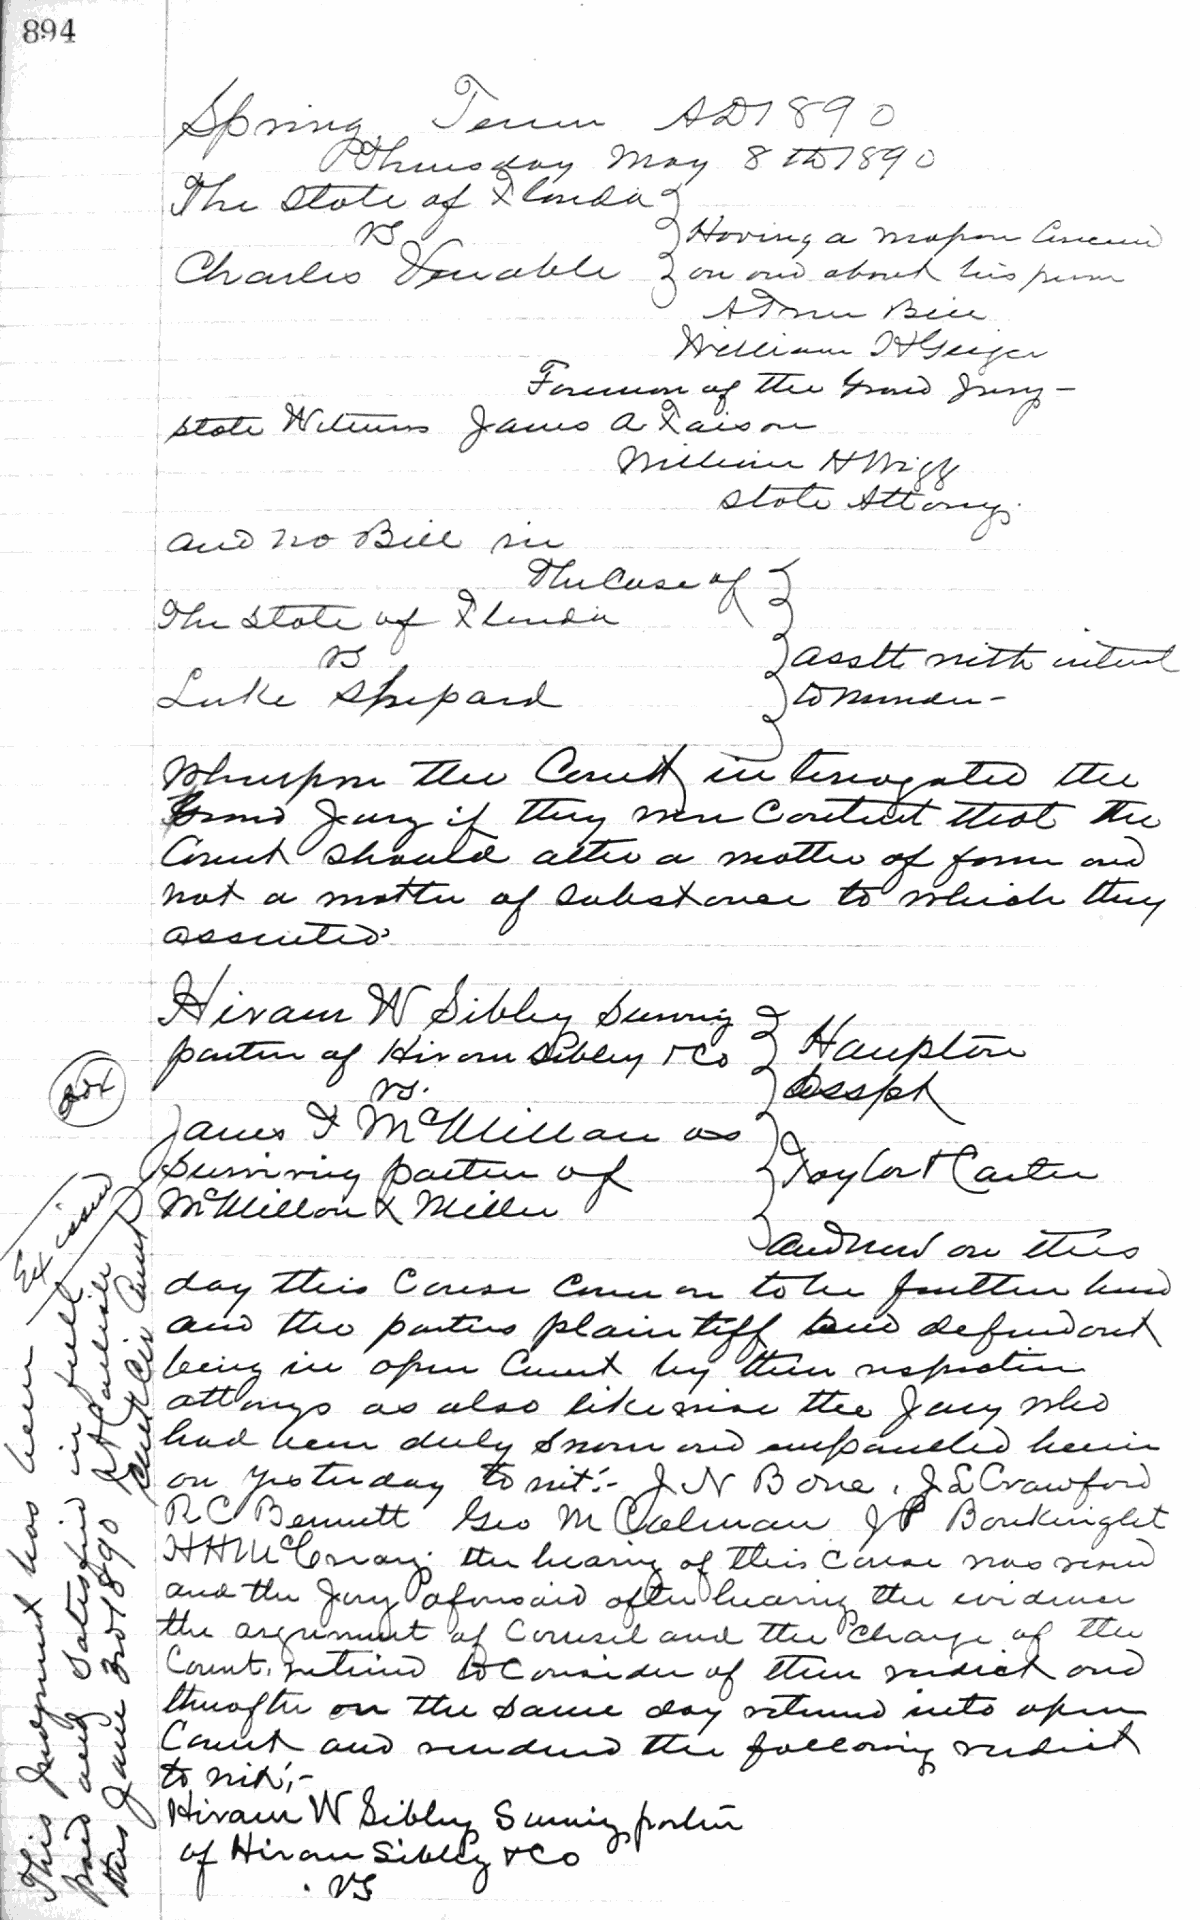 894
Spring Term AD 1890
Thursday May 8th 1890
The State of Florida
vs
Charles Venable
Having a weapon
on and about his person
A True Bill
William H Geiger
Foreman of the Grand Jury –
State Witness James A Faison
William H Wigg
State Attorney.
and no Bill in
The Case of
The State of Florida
vs
Luke Shepard
asslt with intent
to Murder –
Whereupon the Court interrogated the
Grand Jury if they were Content that the
Court should alter a matter of form and
not a matter of substance to which they
assented.
Hiram W Sibley Surviving
partner of Hiram Sibley & Co
vs.
James F McMillan as
Surviving partner of
McMillan & Miller
Hampton
Taylor & Carter
And now on this
day this Cause Came on to be further heard
and the parties plaintiff and defendant
being in open Court by their respective
attorneys as also likewise the Jury who
had been duly sworn and empaneled herein
on yesterday to wit:- J N Bone, J L Crawford
R C Bennett Geo M Colman J P
H H McCreary. the hearing of this Cause was resumed
and the Jury aforesaid after hearing the evidence
the argument of Counsel and the Charge of the
Court, retired to Consider of their verdict and
thereafter on the same day returned into open
Court and rendered the following verdict
to wit;-
Hiram W Sibley Surviving partner
of Hiram Sibley & Co
vs
Ex issued
This Judgment has been
paid and Satisfied in full
this June 3rd 1890
Clerk Cir Court